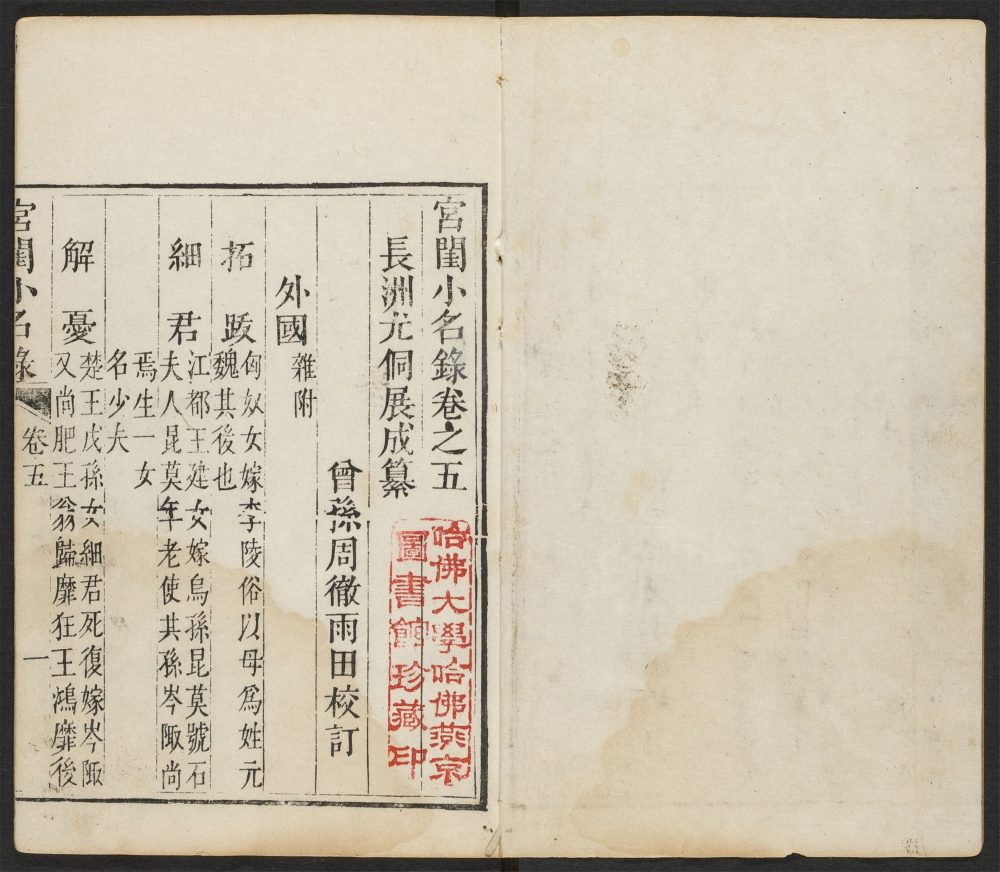 宮閨小名錄卷之五
長洲尤侗展成纂
曾孫周徹雨田校訂
外國
雜附
拓跋
匈奴女嫁李陵俗以母爲姓元
魏其後也
細君
江都王建女嫁烏孫昆莫號右
夫人昆莫年老使其孫岑陬尚
焉生一女
名少夫
解憂
楚王戊孫女細君死復嫁岑陬
又尚肥王翁歸靡狂王鴻靡後
宮閨小名錄
卷五
一
哈佛大學哈佛燕京
圖書館珍藏印